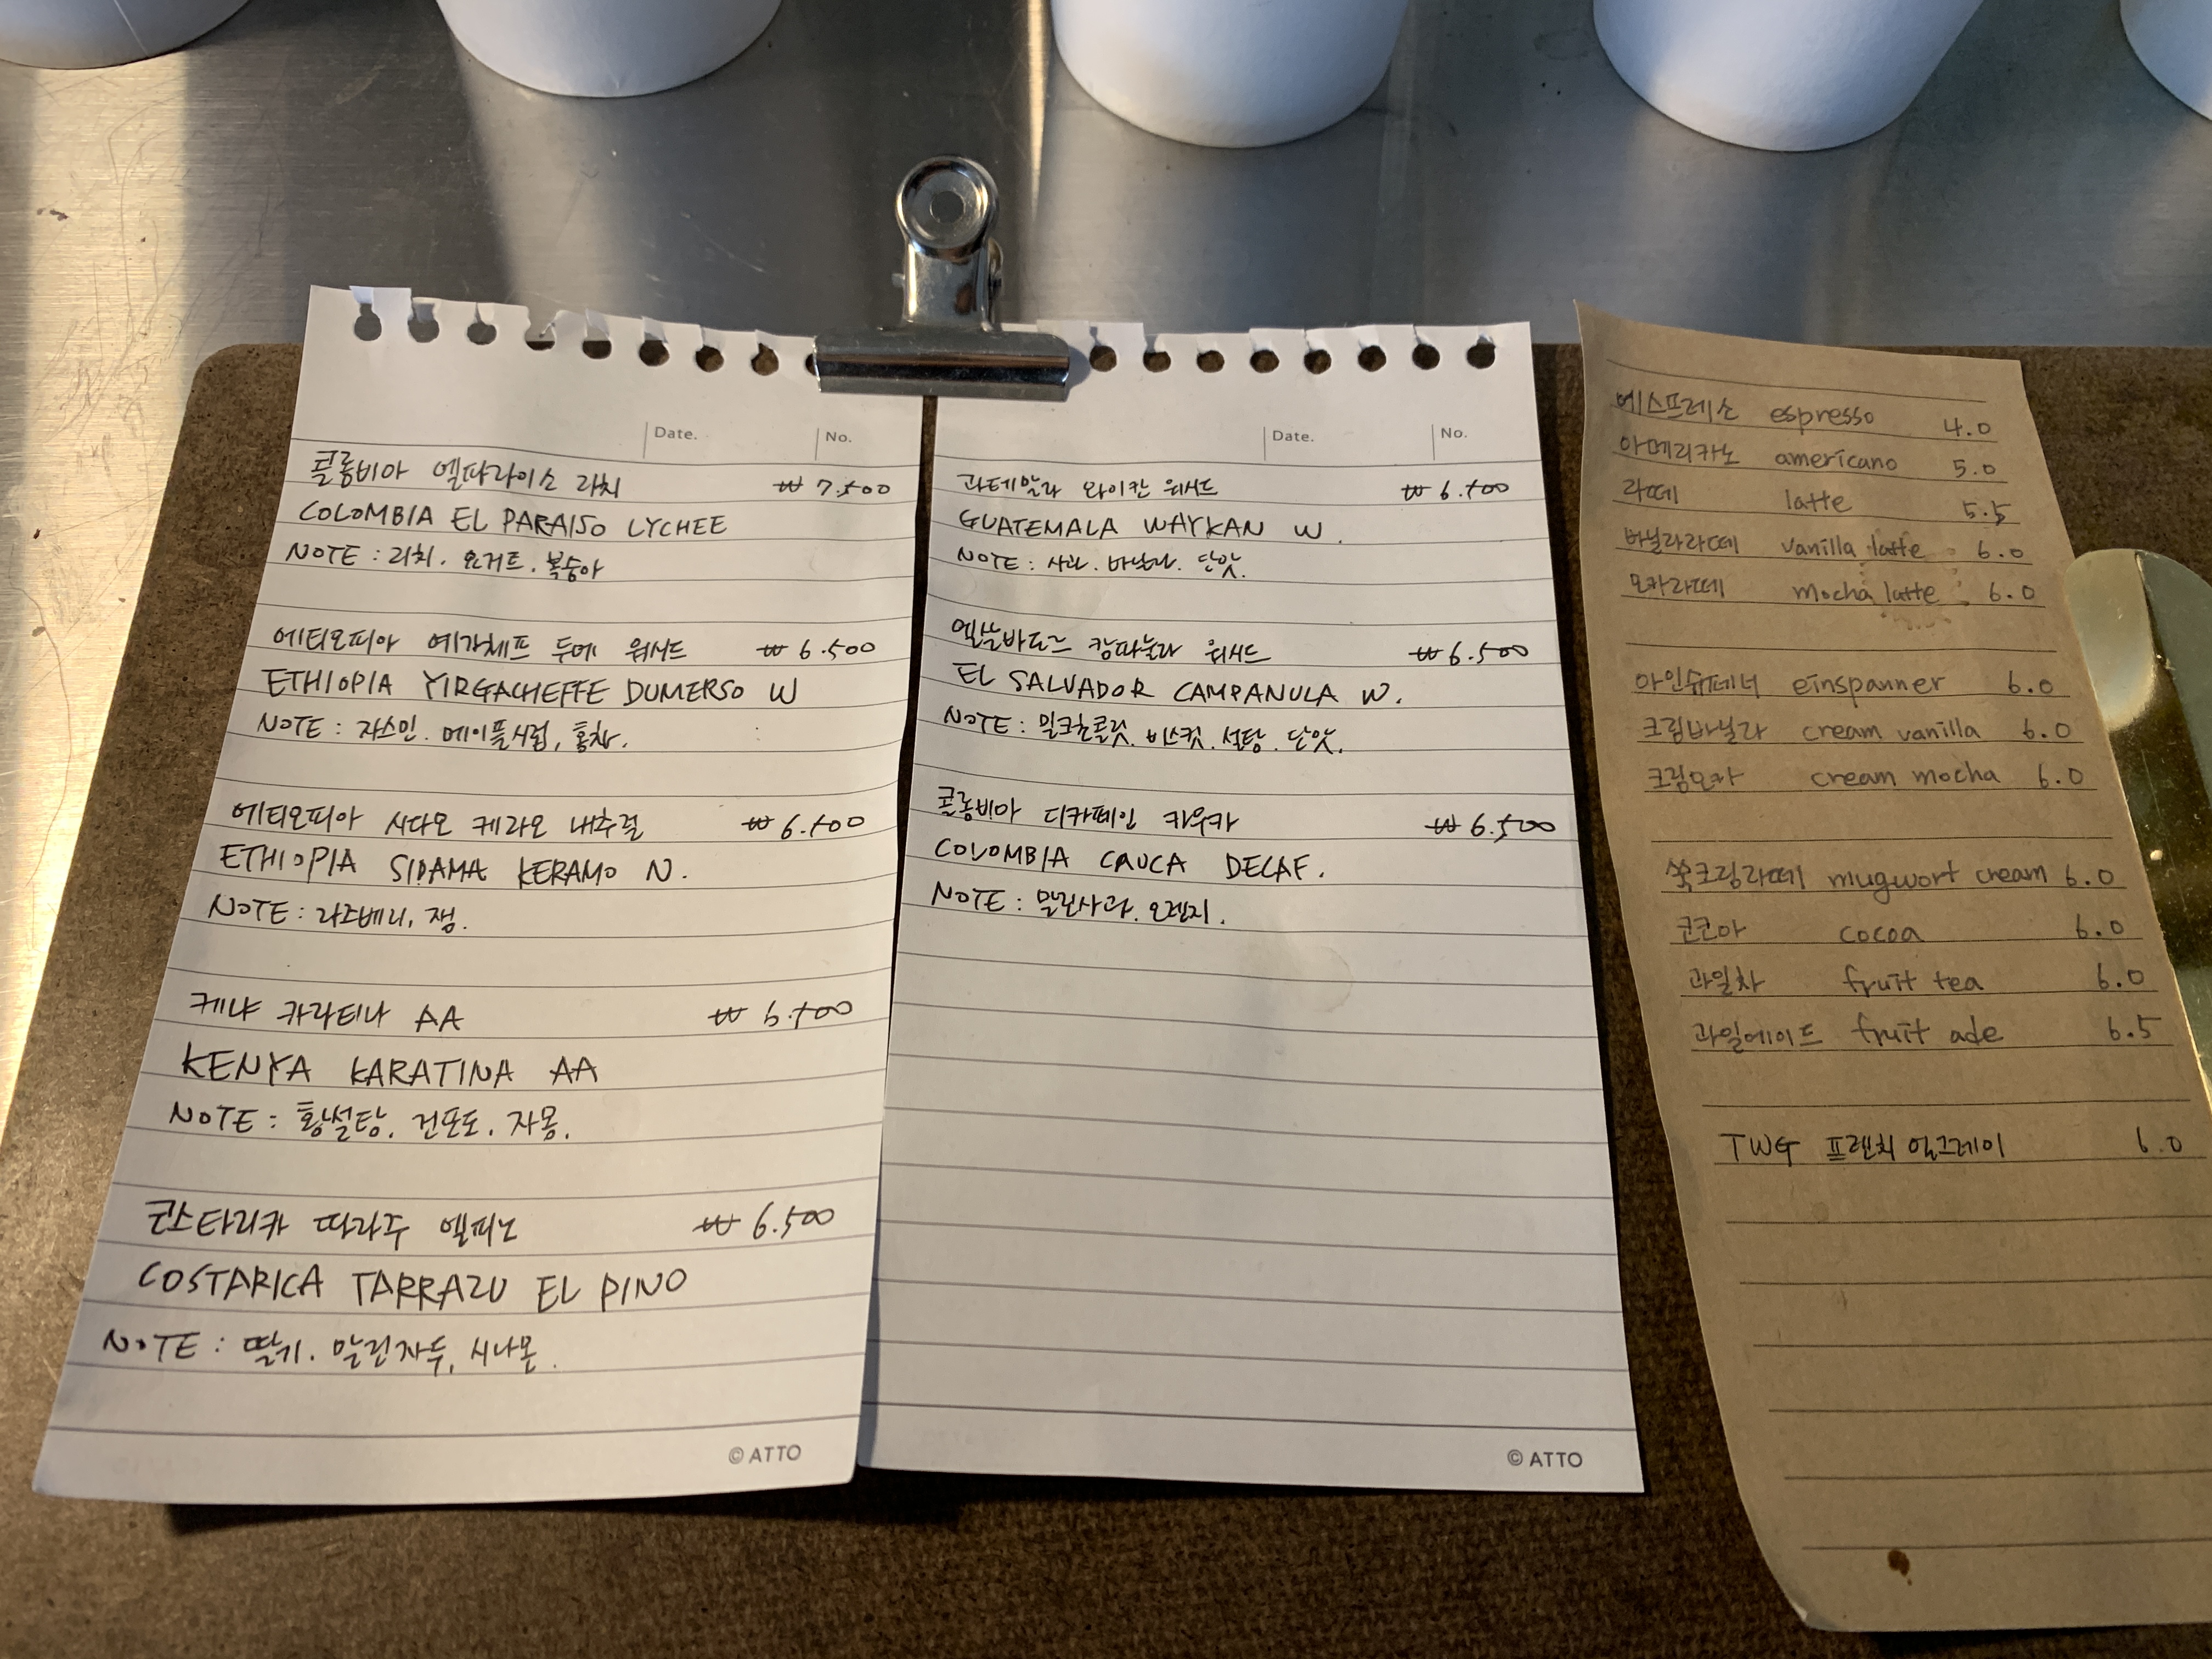 Date. No.
콜롬비아 엘파라이소 리치 ₩ 7.500
COLOMBIA EL PARAISO LYCHEE
NOTE : 리치. 요거트. 복숭아
에티오피아 예가체프 두메 워시드 ₩ 6.500
ETHIOPIA YIRGACHEFFE DUMERSO W
NOTE : 자스민. 메이플시럽, 홍차.
에티오피아 시다모 케라모 내추럴 ₩ 6.500
ETHIOPIA SIDAMA KERAMO N.
NOTE : 라즈베리, 잼.
케냐 카라티나 AA ₩ 6.500
KENYA KARATINA AA
NOTE : 황설탕. 건포도. 자몽.
코스타리카 따라주 엘피노 ₩ 6.500
COSTARICA TARRAZU EL PINO
NOTE : 딸기. 말린자두, 시나몬.
© ATTO
Date. No.
과테말라 와이칸 워시드 ₩ 6.500
GUATEMALA WAYKAN W.
NOTE : 사과. 바닐라. 단맛.
엘살바도르 캄파눌라 워시드 ₩ 6.500
EL SALVADOR CAMPANULA W.
NOTE : 밀크초콜릿. 비스킷. 설탕. 단맛.
콜롬비아 디카페인 카우카 ₩ 6.500
COLOMBIA CAUCA DECAF.
NOTE : 말린사과. 오렌지.
© ATTO
에스프레소 espresso 4.0
아메리카노 americano 5.0
라떼 latte 5.5
바닐라라떼 vanilla latte 6.0
모카라떼 mocha latte 6.0
아인슈페너 einspanner 6.0
크림바닐라 cream vanilla 6.0
크림모카 cream mocha 6.0
쑥크림라떼 mugwort cream 6.0
코코아 cocoa 6.0
과일차 fruit tea 6.0
과일에이드 fruit ade 6.5
TWG 프렌치 얼그레이 6.0